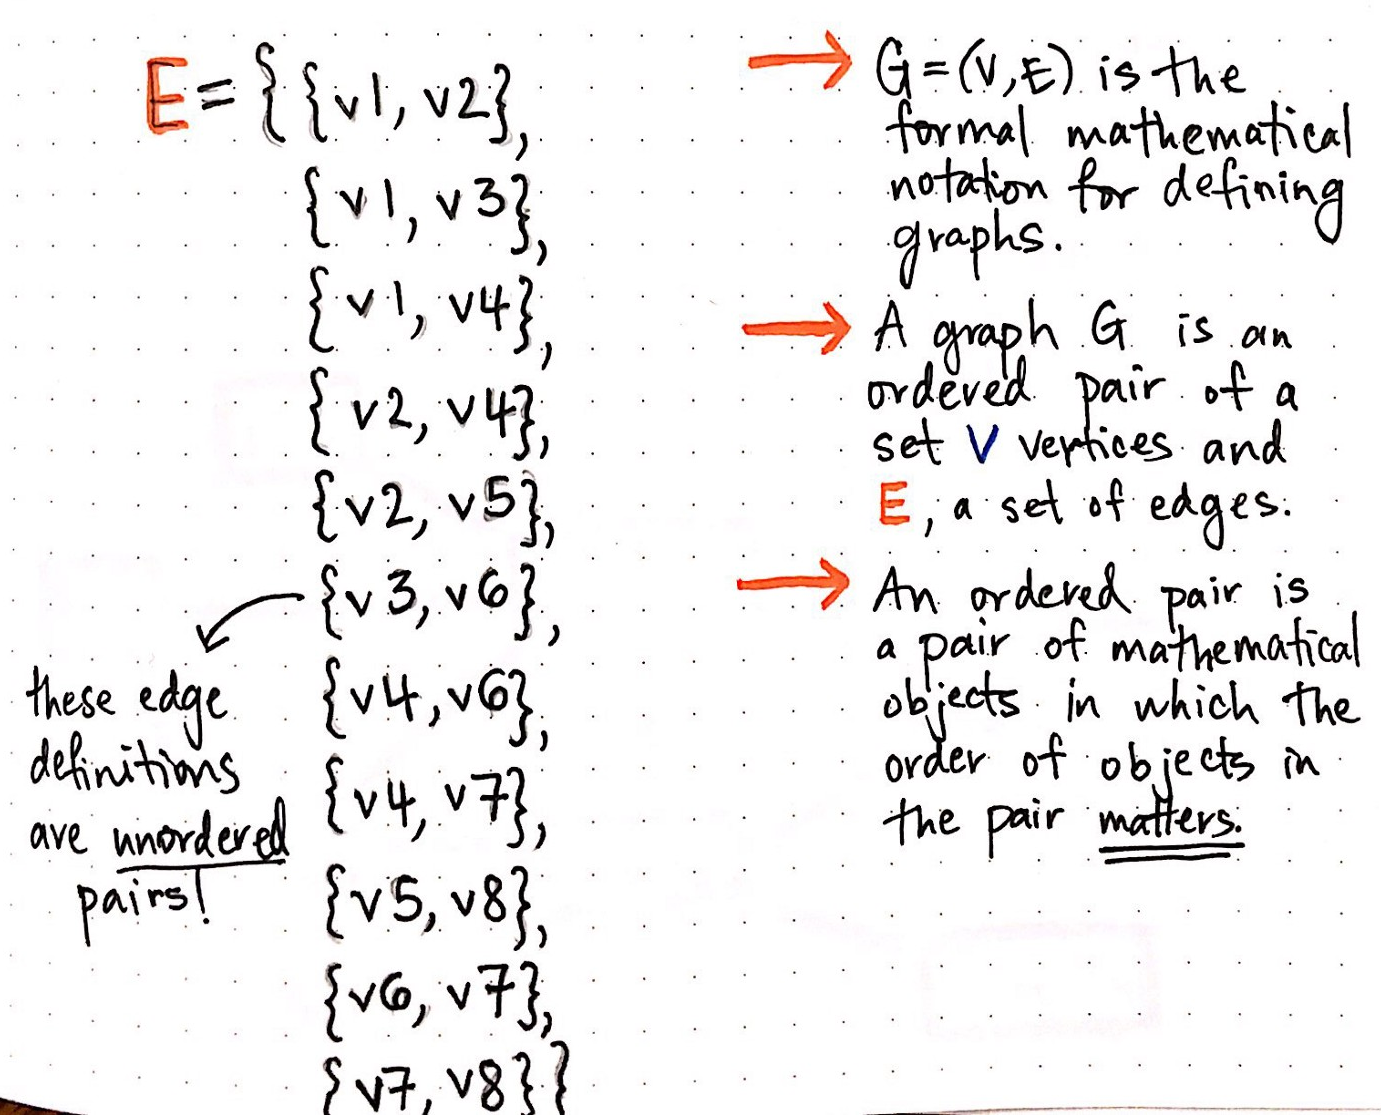 E = { {v1, v2},
{v1, v3},
{v1, v4},
{v2, v4},
{v2, v5},
{v3, v6},
{v4, v6},
{v4, v7},
{v5, v8},
{v6, v7},
{v7, v8} }
these edge
definitions
are unordered
pairs!
→ G = (V, E) is the
formal mathematical
notation for defining
graphs.
→ A graph G is an
ordered pair of a
set V vertices and
E, a set of edges.
→ An ordered pair is
a pair of mathematical
objects in which the
order of objects in
the pair matters.